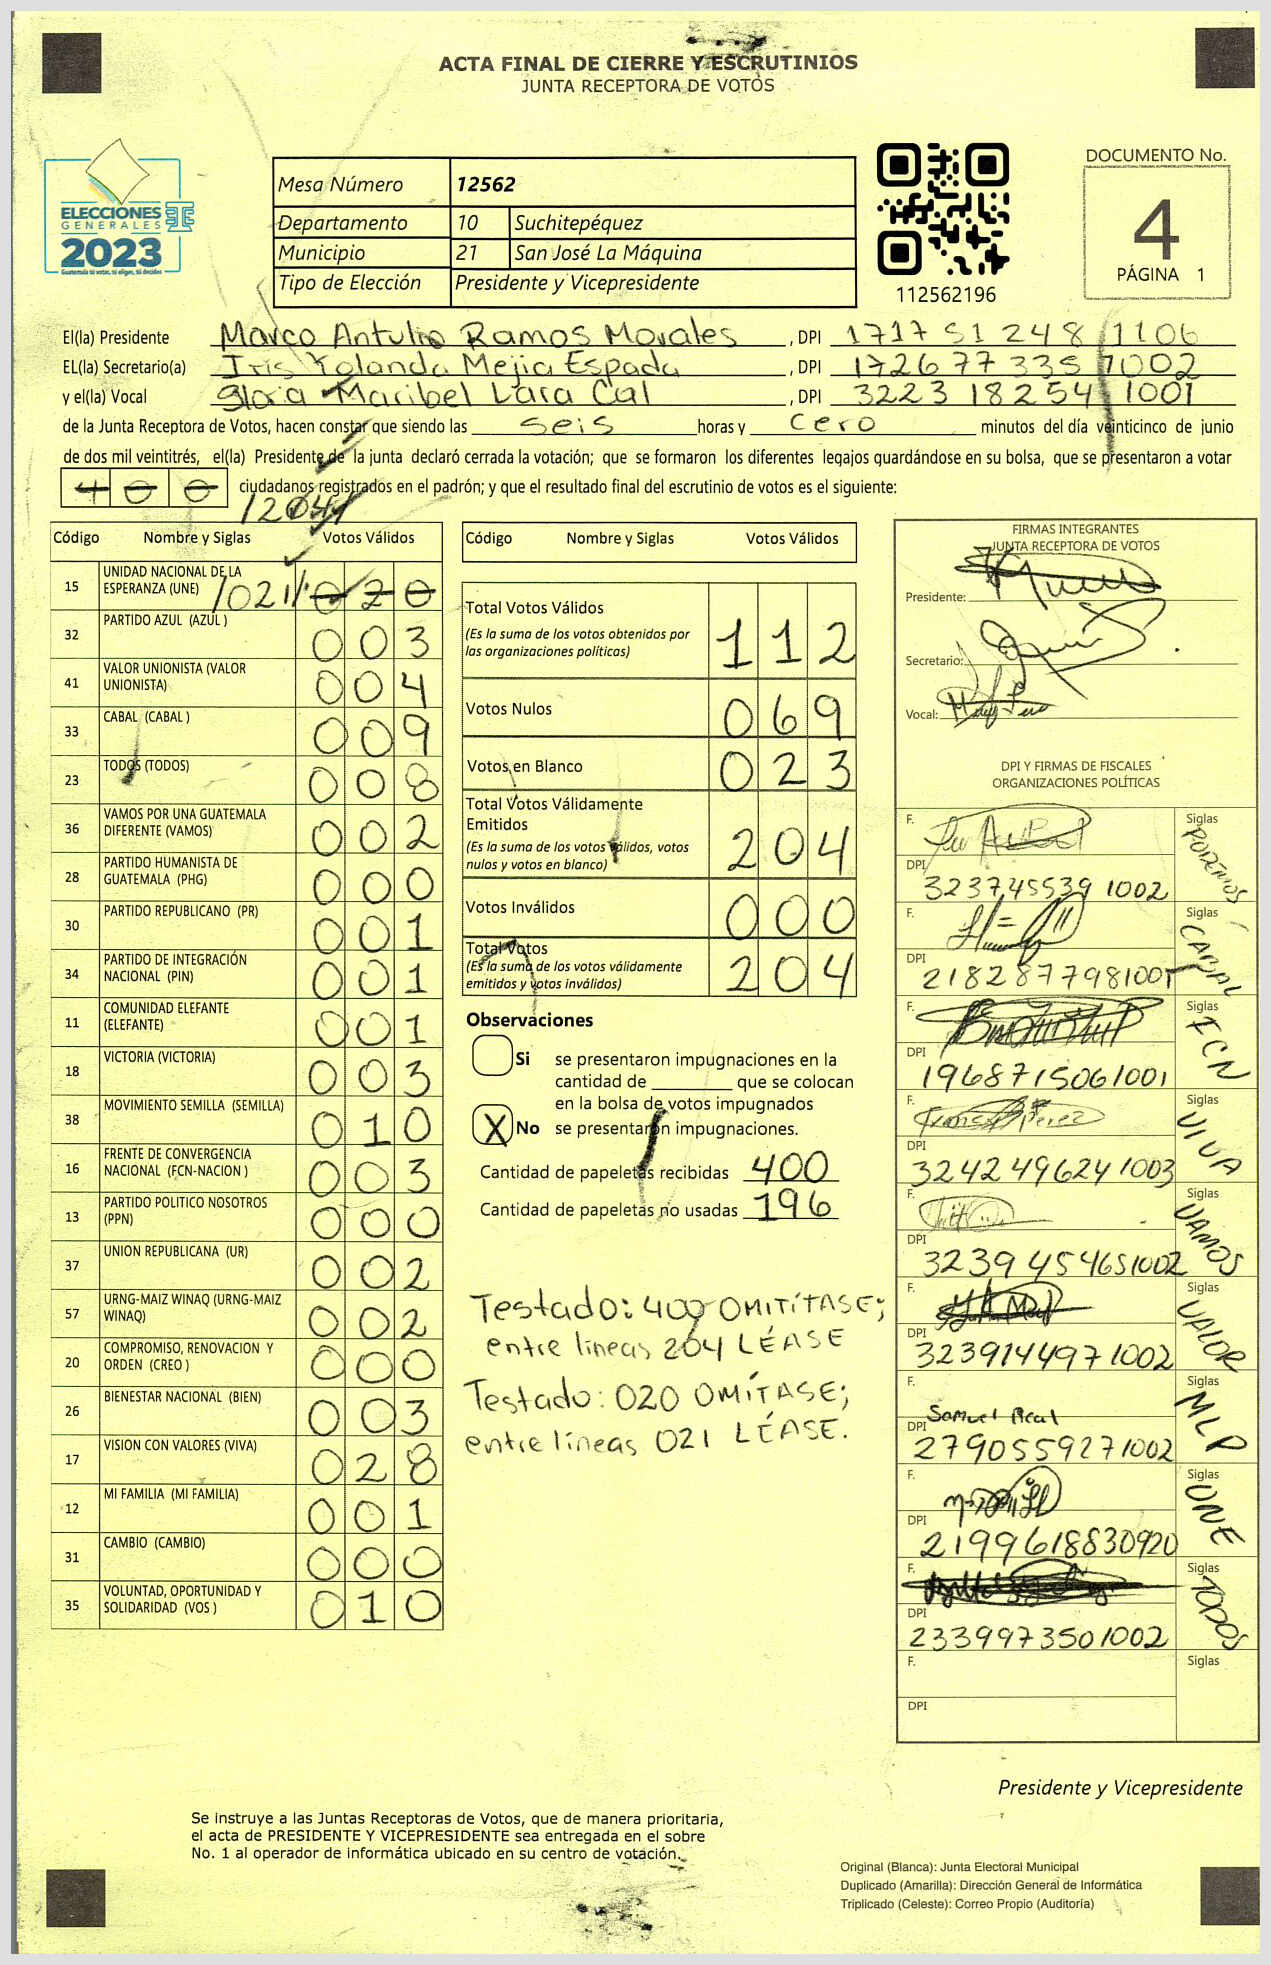 ACTA FINAL DE CIERRE Y ESCRUTINIOS
JUNTA RECEPTORA DE VOTOS
ELECCIONES
GENERALES
2023
Guatemala tú votas, tú eliges, tú decides
Mesa Número 12562
Departamento 10 Suchitepéquez
Municipio 21 San José La Máquina
Tipo de Elección Presidente y Vicepresidente
112562196
DOCUMENTO No.
4
PÁGINA 1
El(la) Presidente Marco Antulio Ramos Morales , DPI 1717 51 248 1106
EL(la) Secretario(a) Iris Yolanda Mejia Espada , DPI 172677335 1002
y el(la) Vocal Gloria Maribel Lara Cal , DPI 3223 18254 1001
de la Junta Receptora de Votos, hacen constar que siendo las seis horas y cero minutos del día veinticinco de junio
de dos mil veintitrés, el(la) Presidente de la junta declaró cerrada la votación; que se formaron los diferentes legajos guardándose en su bolsa, que se presentaron a votar
400 ciudadanos registrados en el padrón; y que el resultado final del escrutinio de votos es el siguiente:
/204//
Código Nombre y Siglas Votos Válidos
15 UNIDAD NACIONAL DE LA
ESPERANZA (UNE) /021// 020
32 PARTIDO AZUL (AZUL ) 003
41 VALOR UNIONISTA (VALOR
UNIONISTA) 004
33 CABAL (CABAL ) 009
23 TODOS (TODOS) 008
36 VAMOS POR UNA GUATEMALA
DIFERENTE (VAMOS) 002
28 PARTIDO HUMANISTA DE
GUATEMALA (PHG) 000
30 PARTIDO REPUBLICANO (PR) 001
34 PARTIDO DE INTEGRACIÓN
NACIONAL (PIN) 001
11 COMUNIDAD ELEFANTE
(ELEFANTE) 001
18 VICTORIA (VICTORIA) 003
38 MOVIMIENTO SEMILLA (SEMILLA) 010
16 FRENTE DE CONVERGENCIA
NACIONAL (FCN-NACION ) 003
13 PARTIDO POLITICO NOSOTROS
(PPN) 000
37 UNION REPUBLICANA (UR) 002
57 URNG-MAIZ WINAQ (URNG-MAIZ
WINAQ) 002
20 COMPROMISO, RENOVACION Y
ORDEN (CREO ) 000
26 BIENESTAR NACIONAL (BIEN) 003
17 VISION CON VALORES (VIVA) 028
12 MI FAMILIA (MI FAMILIA) 001
31 CAMBIO (CAMBIO) 000
35 VOLUNTAD, OPORTUNIDAD Y
SOLIDARIDAD (VOS ) 010
Código Nombre y Siglas Votos Válidos
Total Votos Válidos
(Es la suma de los votos obtenidos por
las organizaciones políticas) 112
Votos Nulos 069
Votos en Blanco 023
Total Votos Válidamente
Emitidos
(Es la suma de los votos válidos, votos
nulos y votos en blanco) 204
Votos Inválidos 000
Total Votos
(Es la suma de los votos válidamente
emitidos y votos inválidos) 204
Observaciones
Si se presentaron impugnaciones en la
cantidad de ________ que se colocan
en la bolsa de votos impugnados
X No se presentaron impugnaciones.
Cantidad de papeletas recibidas 400
Cantidad de papeletas no usadas 196
Testado: 400 OMITÍTASE;
entre lineas 204 LÉASE
Testado: 020 OMÍTASE;
entre líneas 021 LÉASE.
FIRMAS INTEGRANTES
JUNTA RECEPTORA DE VOTOS
Presidente:
Secretario:
Vocal:
DPI Y FIRMAS DE FISCALES
ORGANIZACIONES POLÍTICAS
F. Siglas PODEMOS
DPI 323745539 1002
F. Siglas CABAL
DPI 2182877981001
F. Siglas FCN
DPI 1968715061001
F. Siglas VIVA
DPI 3242496241003
F. Siglas VAMOS
DPI 3239454651002
F. Siglas VALOR
DPI 3239144971002
F. Samuel Real Siglas MLP
DPI 2790559271002
F. Siglas UNE
DPI 2199618830920
F. Siglas TODOS
DPI 2339973501002
F. Siglas
DPI
Presidente y Vicepresidente
Se instruye a las Juntas Receptoras de Votos, que de manera prioritaria,
el acta de PRESIDENTE Y VICEPRESIDENTE sea entregada en el sobre
No. 1 al operador de informática ubicado en su centro de votación.
Original (Blanca): Junta Electoral Municipal
Duplicado (Amarilla): Dirección General de Informática
Triplicado (Celeste): Correo Propio (Auditoría)